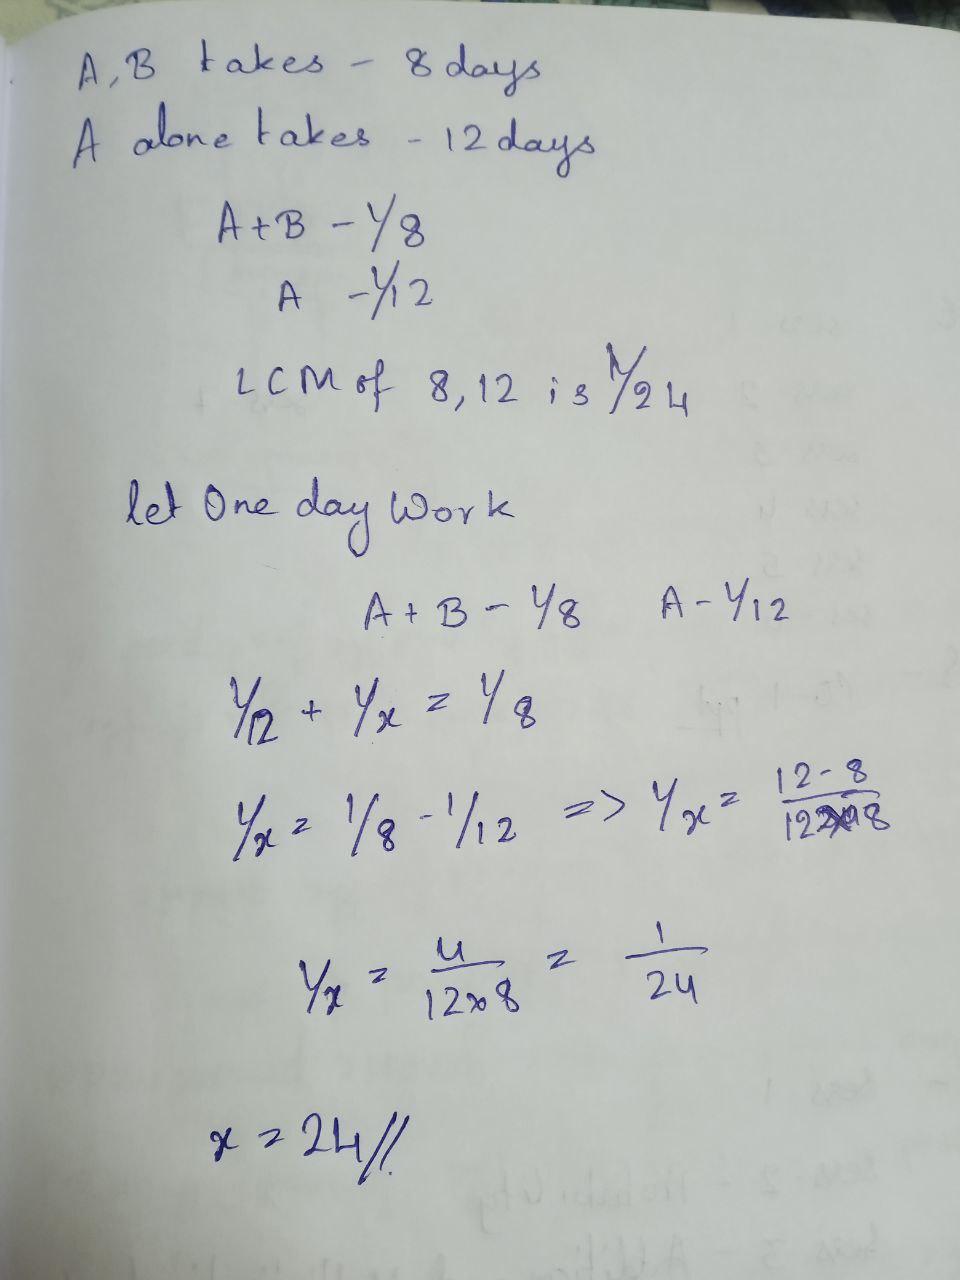 A, B takes - 8 days
A alone takes - 12 days
A+B - 1/8
A - 1/12
LCM of 8,12 is 1/24
let One day Work
A + B - 1/8 A - 1/12
1/12 + 1/x = 1/8
1/x = 1/8 - 1/12 => 1/x = 12-8/12x8
1/x = 4/12x8 = 1/24
x = 24//